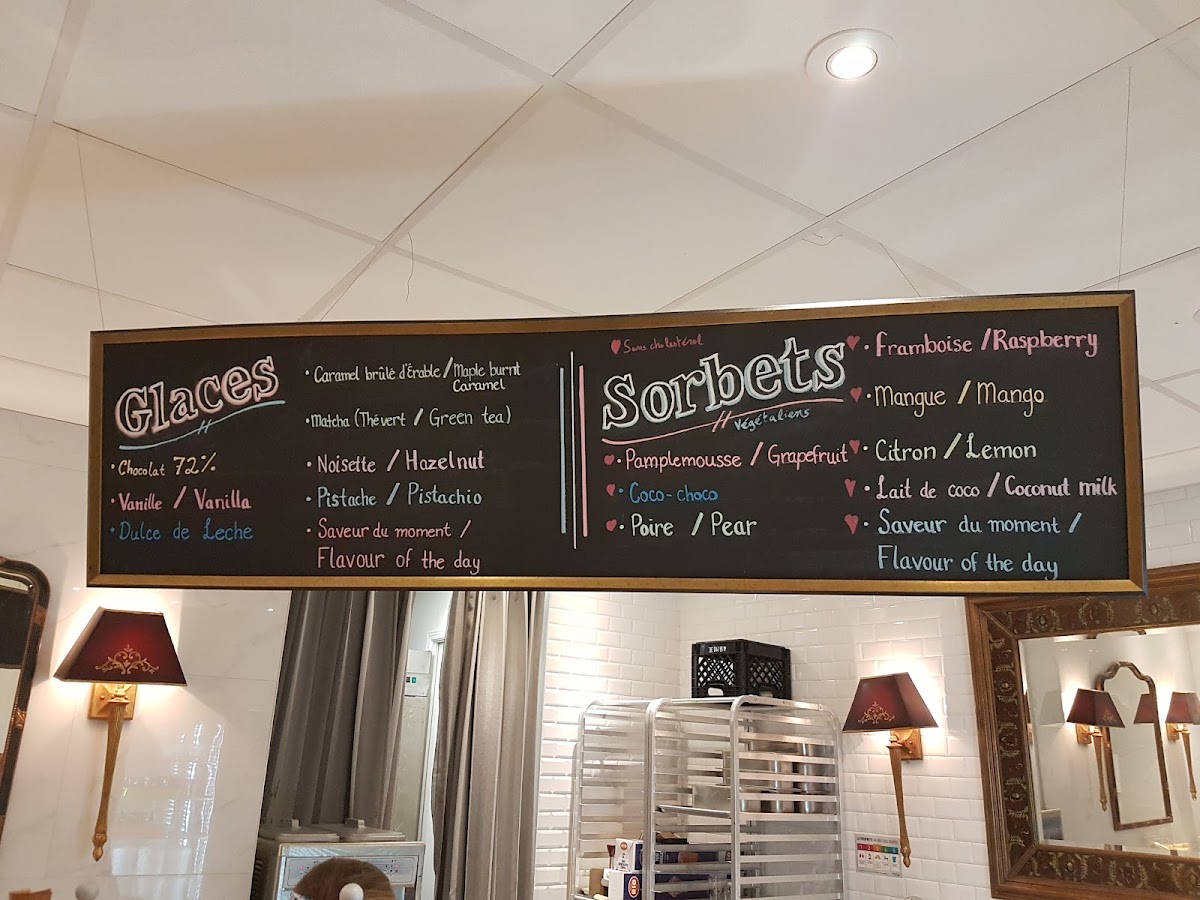 Glaces
• Chocolat 72%
• Vanille / Vanilla
• Dulce de Leche
• Caramel brûlé d'Érable / Maple burnt
Caramel
• Matcha (Thé vert / Green tea)
• Noisette / Hazelnut
• Pistache / Pistachio
• Saveur du moment /
Flavour of the day
Sans cholestérol
Sorbets
Végétaliens
• Pamplemousse / Grapefruit
• Coco-choco
• Poire / Pear
• Framboise / Raspberry
• Mangue / Mango
• Citron / Lemon
• Lait de coco / Coconut milk
• Saveur du moment /
Flavour of the day